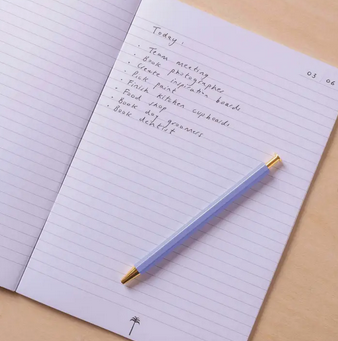 Today:
03 06
- Team meeting
- Book photographer
- Create inspiration boards
- Pick paint
- Finish kitchen cupboards
- Food shop
- Book dog groomers
- Book dentist